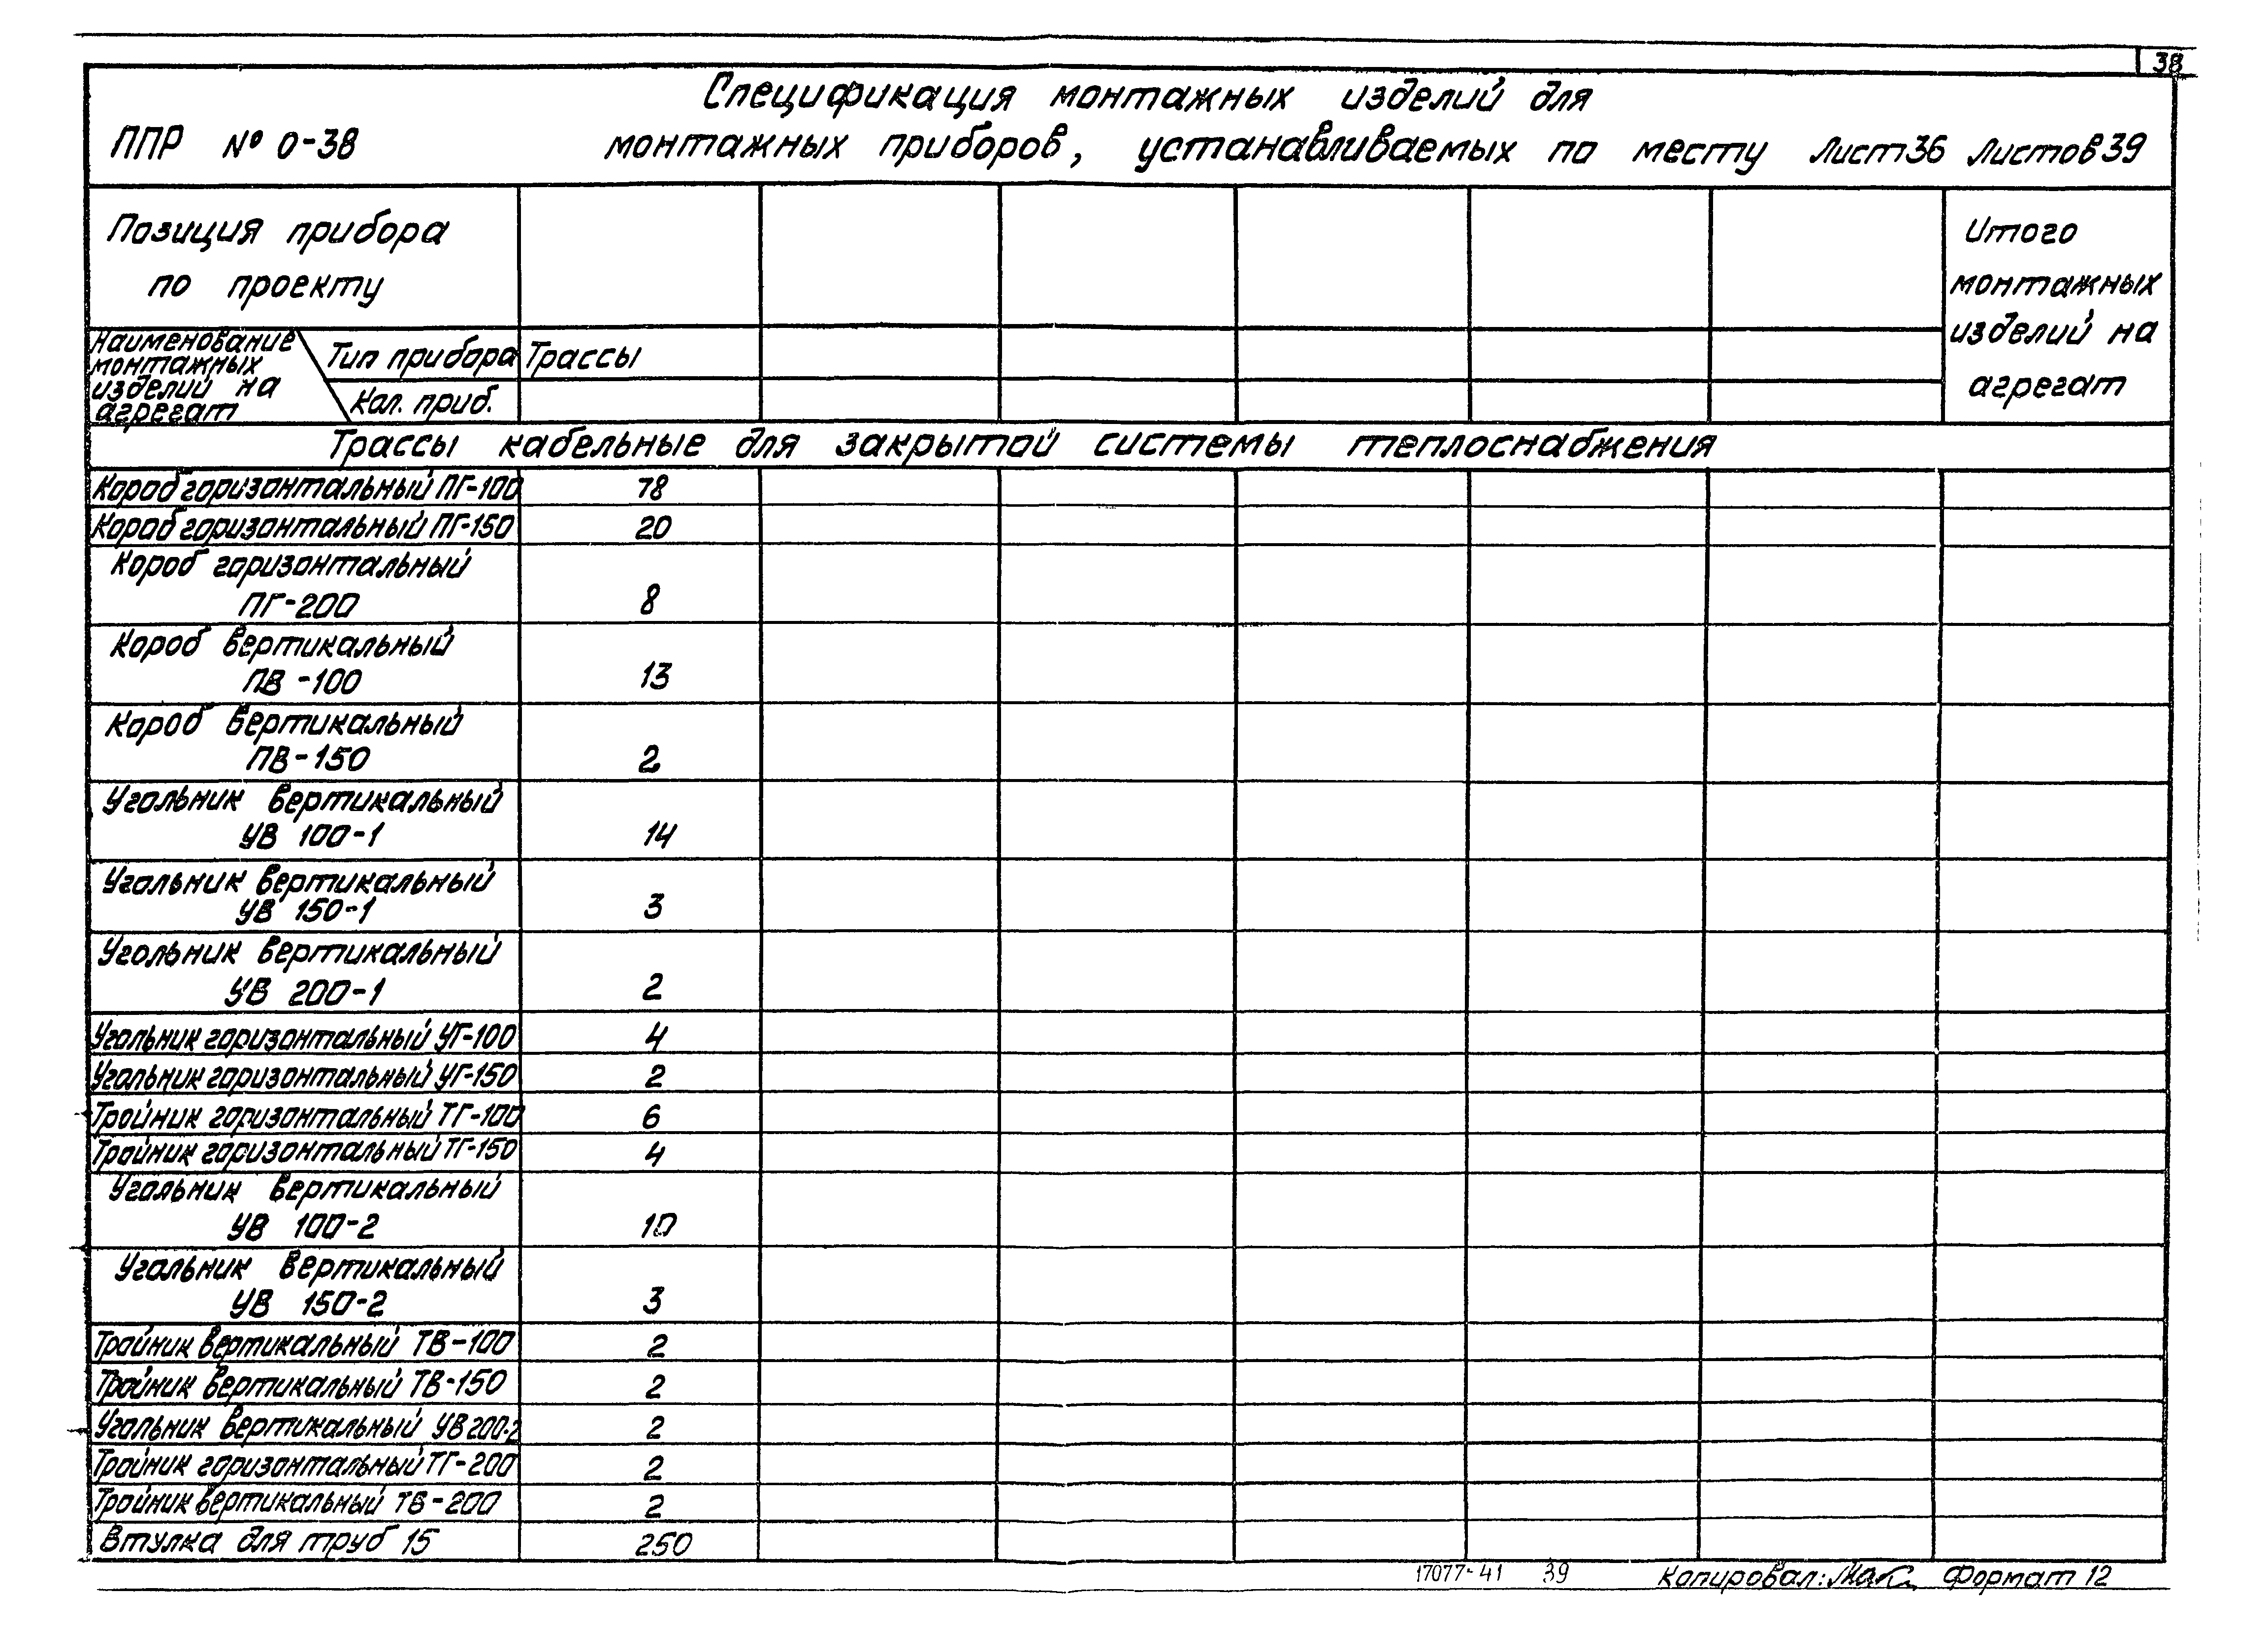 38
Спецификация монтажных изделий для
ППР № 0-38 монтажных приборов, устанавливаемых по месту Лист 36 Листов 39
Позиция прибора
по проекту
Итого
монтажных
изделий на
агрегат
Наименование
монтажных
изделий на
агрегат
Тип прибора Трассы
Кол. приб.
Трассы кабельные для закрытой системы теплоснабжения
Короб горизонтальный ПГ-100 78
Короб горизонтальный ПГ-150 20
Короб горизонтальный
ПГ-200 8
Короб вертикальный
ПВ-100 13
Короб вертикальный
ПВ-150 2
Угольник вертикальный
УВ 100-1 14
Угольник вертикальный
УВ 150-1 3
Угольник вертикальный
УВ 200-1 2
Угольник горизонтальный УГ-100 4
Угольник горизонтальный УГ-150 2
Тройник горизонтальный ТГ-100 6
Тройник горизонтальный ТГ-150 4
Угольник вертикальный
УВ 100-2 10
Угольник вертикальный
УВ 150-2 3
Тройник вертикальный ТВ-100 2
Тройник вертикальный ТВ-150 2
Угольник вертикальный УВ 200-2 2
Тройник горизонтальный ТГ-200 2
Тройник вертикальный ТВ-200 2
Втулка для труб 15 250
17077-41 39 Копировал: Формат 12